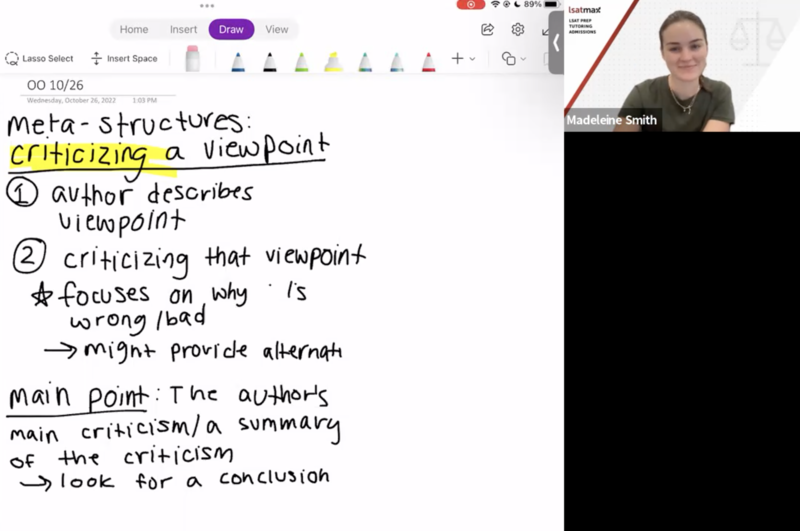 89%
Home Insert Draw View
Lasso Select Insert Space
OO 10/26
Wednesday, October 26, 2022 1:03 PM
meta-structures:
criticizing a viewpoint
1 author describes
viewpoint
2 criticizing that viewpoint
☆ focuses on why is
wrong/bad
→ might provide alternati
main point: The author's
main criticism/a summary
of the criticism
→ look for a conclusion
lsatmax
LSAT PREP
TUTORING
ADMISSIONS
Madeleine Smith